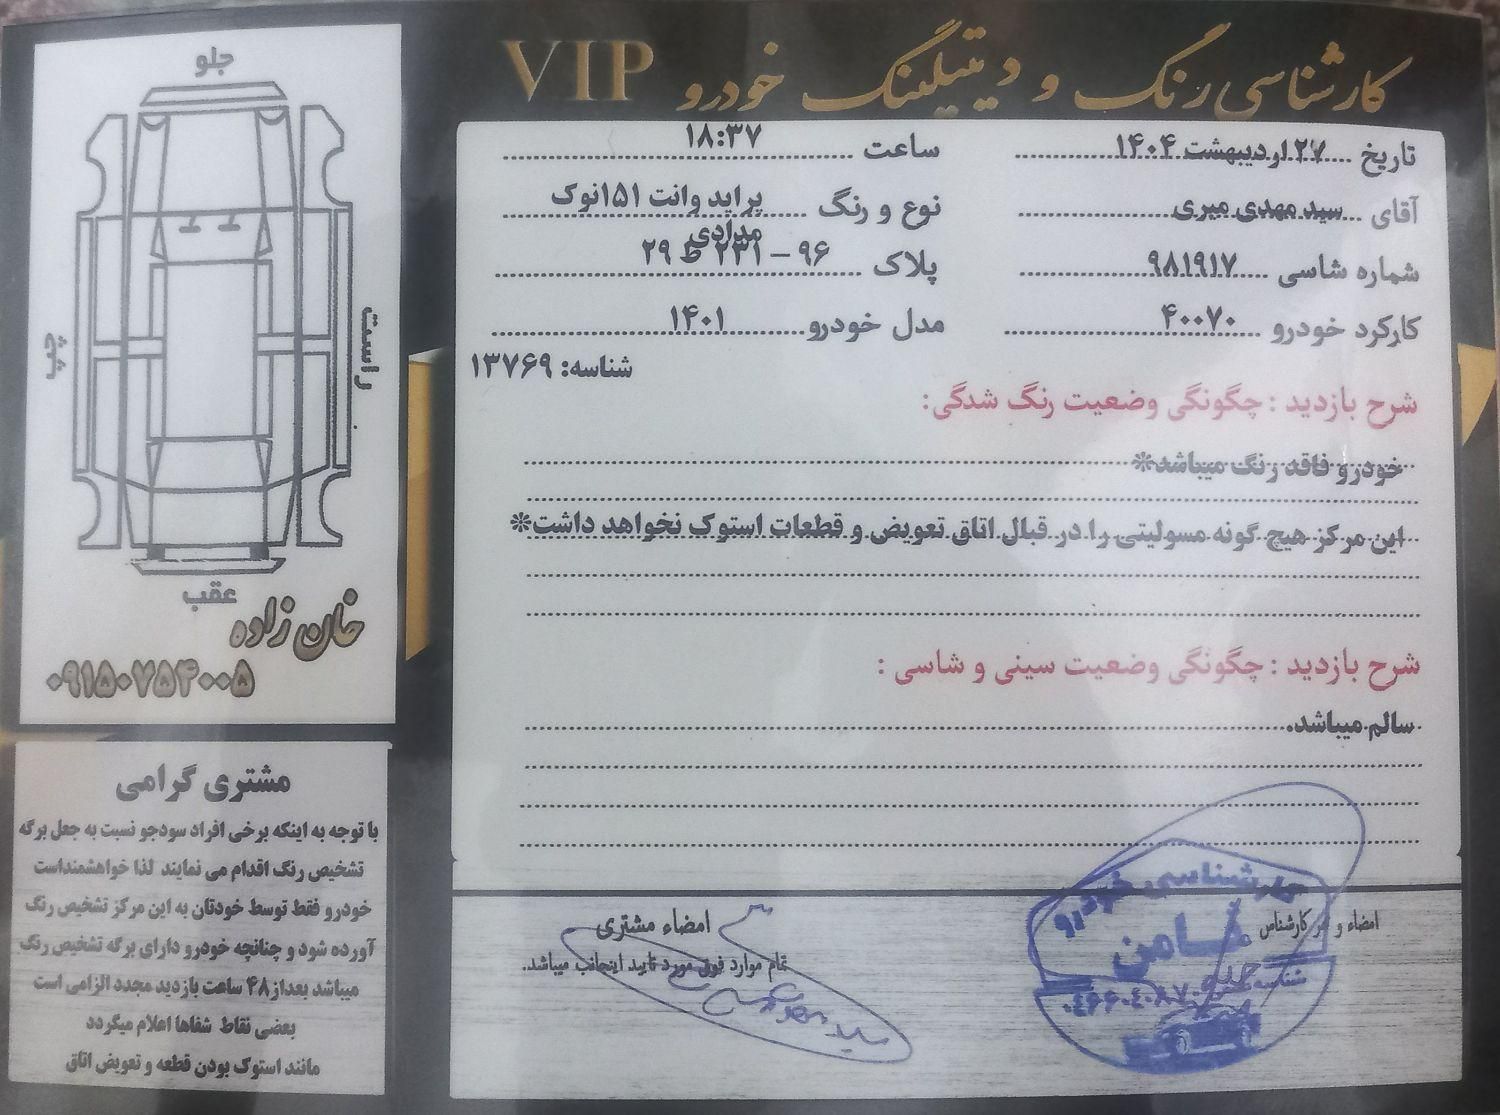 کارشناسی رنگ و دیتیلینگ خودرو VIP
تاریخ ۲۷ اردیبهشت ۱۴۰۴
ساعت ۱۸:۳۷
آقای سید مهدی میری
نوع و رنگ پراید وانت ۱۵۱نوک مدادی
شماره شاسی ۹۸۱۹۱۷
پلاک ۹۶ – ۲۳۱ ط ۲۹
کارکرد خودرو ۴۰۰۷۰
مدل خودرو ۱۴۰۱
شناسه: ۱۳۷۶۹
شرح بازدید : چگونگی وضعیت رنگ شدگی:
خودرو فاقد رنگ میباشد*
این مرکز هیچ گونه مسولیتی را در قبال اتاق تعویض و قطعات استوک نخواهد داشت*
شرح بازدید : چگونگی وضعیت سینی و شاسی :
سالم میباشد.
امضاء و مهر کارشناس
کارشناسی خودرو
ثامن
شناسه
امضاء مشتری
تمام موارد فوق مورد تایید اینجانب میباشد.
جلو
راست
چپ
عقب
خان زاده
۰۹۱۵۰۷۵۴۰۰۵
مشتری گرامی
با توجه به اینکه برخی افراد سودجو نسبت به جعل برگه
تشخیص رنگ اقدام می نمایند لذا خواهشمنداست
خودرو فقط توسط خودتان به این مرکز تشخیص رنگ
آورده شود و چنانچه خودرو دارای برگه تشخیص رنگ
میباشد بعداز ۴۸ ساعت بازدید مجدد الزامی است
بعضی نقاط شفاها اعلام میگردد
مانند استوک بودن قطعه و تعویض اتاق